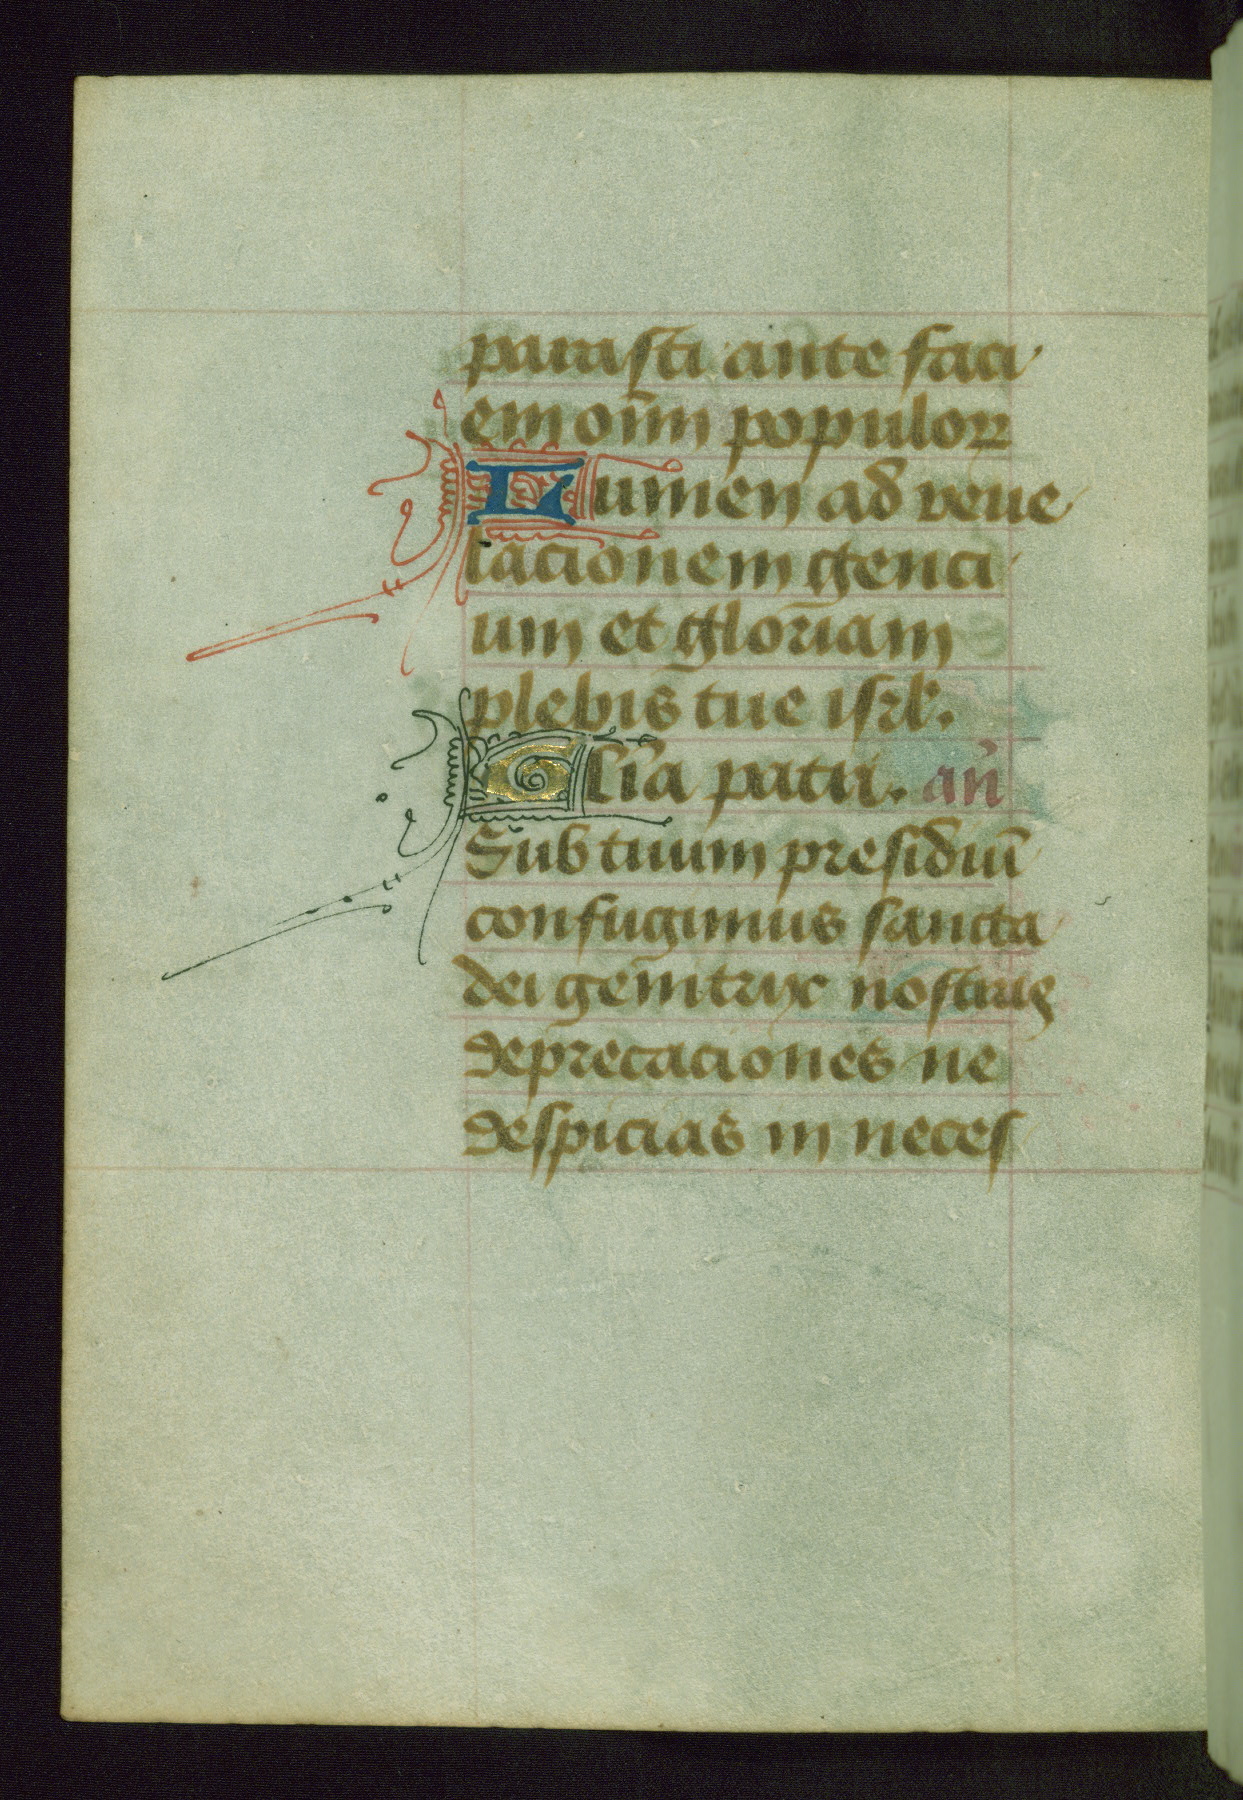 parasti ante faci
em om̄n populoꝝ
Lumen ad reue
lacionem genci
um et gloriam
plebis tue isrl̄.
Gl̄ia patri. an̄
Sub tuum presidiū
confugimus sancta
dei genitrix nostras
deprecaciones ne
despicias in neces